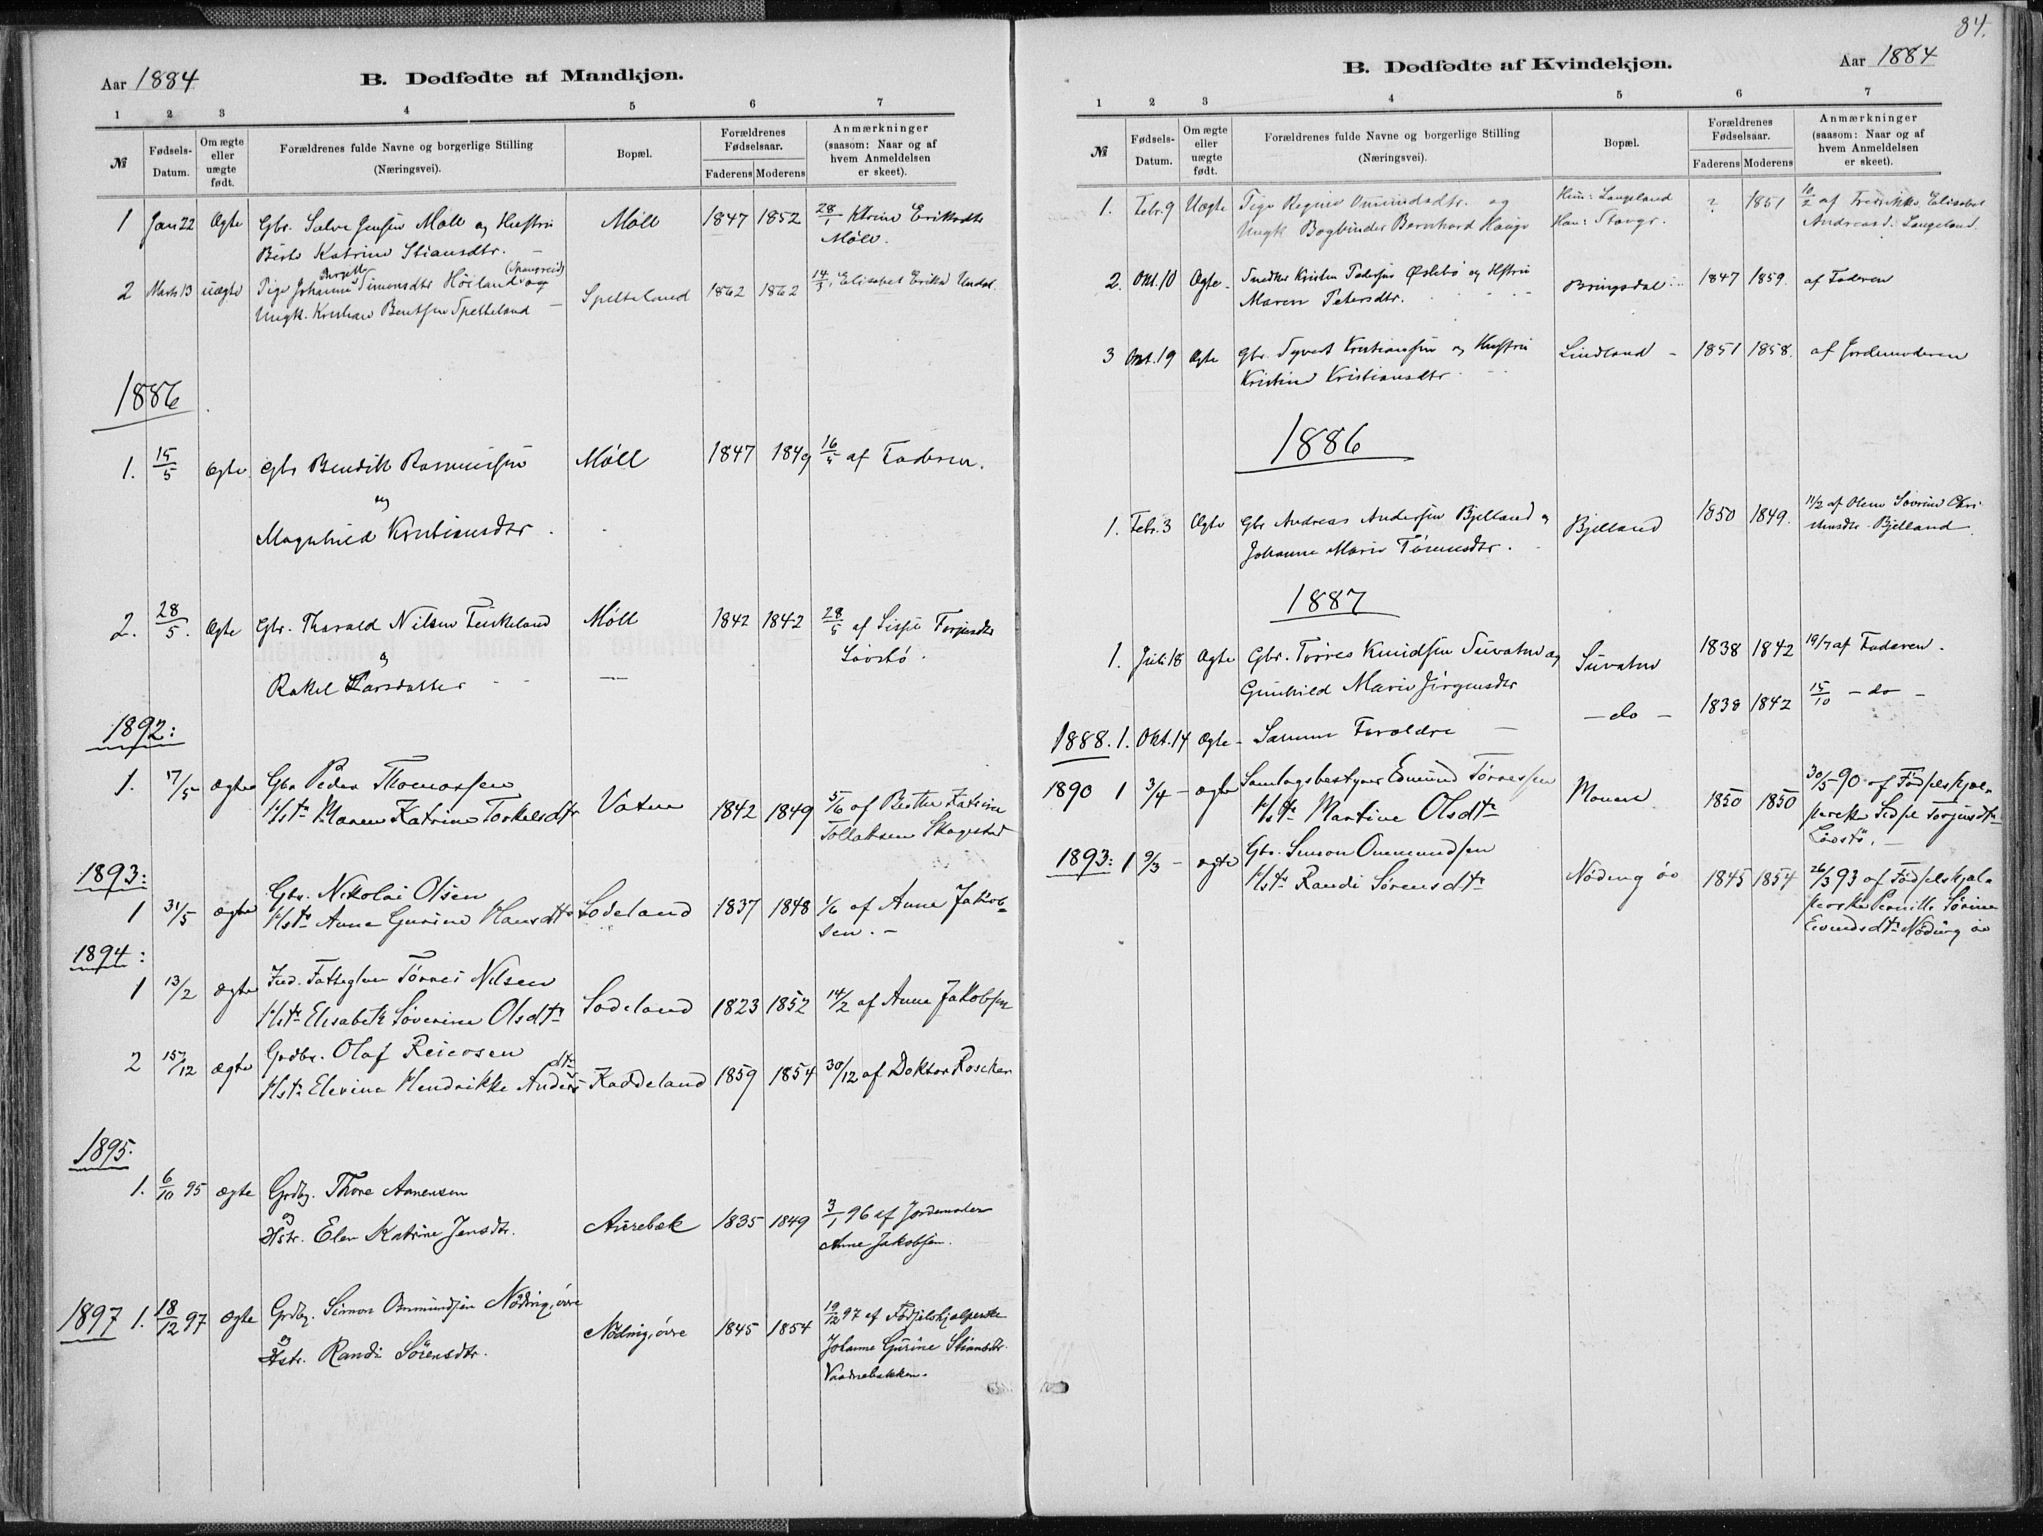 Aar 1884
B. Dødfødte af Mandkjøn.
1 2 3 4 5 6 7
№ Fødsels-Datum. Om ægte eller uægte født. Forældrenes fulde Navne og borgerlige Stilling (Næringsvei). Bopæl. Forældrenes Fødselsaar. Faderens Moderens Anmærkninger (saasom: Naar og af hvem Anmeldelsen er skeet).
1 Jan 22 Ægte Gbr. Salve Jensen Møll og Hustru Møll 1847 1852 28/1 Eriksdtr
Berte Katrine Stiansdtr. — Møll.
2 Marts 13 uægte Pige Johanne Bergitte Simonsdtr Høiland (Spangreid) og Spelteland 1862 1862 14/3 Elisabet Erikа Undal.
Ungk. Kristian Bentsen Spelteland —
1886
1. 15/5 Ægte Gbr Bendik Rasmussen Møll 1847 1849 16/5 af Faderen.
og
Magnhild Kristiansdtr.
2. 28/5. Ægte Gbr. Tharald Nilsen Møll 1842 1842 28/5 af Sisse Torjusdtr
og Løvstø.
Rakel Larsdatter —
1892:
1. 17/5 ægte Gbr Peder Thomassen
Hstr Maren Katrine Torkelsdtr Vatne 1842 1849 5/6 af Berthe Katrine
Tollaksen Skogstad
1893:
1 31/5 ægte Gbr. Nikolai Olsen
Hstr Anne Gurine Hansdtr Sodeland 1837 1848 1/6 af Anne Jakobsen. —
1894:
1 13/2 ægte Ind. Fattiglem Tørres Nilsen
Hstr Elisabeth Søverine Olsdtr Sodeland 1823 1852 14/2 af Anne Jakobsen
2 15/12 ægte Grdbr. Olaf Reiersen
Hstr Elevine Hendrikke Andersdtr Kaddeland 1859 1854 30/12 af Doktor Roscher
1895.
1. 6/10 95 ægte Grdbr. Thore Aanensen
og
Hstr. Elen Katrine Jensdtr. Aurebæk 1835 1849 3/1 96 af Jordemoder
Anne Jakobsen.
1897 1. 18/12 97 Ægte Grdbr. Simon Ommundsen Nøding, øvre
og
Hstr. Randi Sørensdtr. Nøding, øvre 1845 1854 19/12 97 af Fødselshjælperske
Johanne Gurine Stiansdtr.
84.
B. Dødfødte af Kvindekjøn.
Aar 1884
1 2 3 4 5 6 7
№ Fødsels-Datum. Om ægte eller uægte født. Forældrenes fulde Navne og borgerlige Stilling (Næringsvei). Bopæl. Forældrenes Fødselsaar. Faderens Moderens Anmærkninger (saasom: Naar og af hvem Anmeldelsen er skeet).
1. Febr. 9 Uægte Pige Regine Omundsdtr. og Hun: Langeland ? 1851 10/2 af Fredrikke Elisabet
Ungk Bogbinder Bernhard Hauge Han: Stavgr. Andreasd. Langeland.
2. Okt. 10 Ægte Snedker Kristen Pedersen Øslebø og Hstru Bringsdal 1847 1859. af Faderen
Maren Petersdtr.
3 Okt. 19 Ægte Gbr. Syvert Kristiansen og Hustru Lindland - 1851 1858. af Jordemoderen
Kristine Kristiansdtr.
1886
1. Febr. 3 Ægte Gbr Andreas Andersen Bjelland og Bjelland 1850 1849. 11/2 af Olene Sovrine Chri
Johanne Marie Tønnesdtr. stensdtr. Bjelland.
1887
1. Juli 18 Ægte Gbr. Tørres Knudsen Suvatne og Suvatne 1838 1842 19/7 af Faderen.
Gunhild Marie Jørgensdtr
— do — 1838 1842 15/10 — do —
1888. 1. Okt. 14 Ægte - Samme Foreldre —
1890 1 3/4 - ægte Samlagsbestyrer Edmund Tørressen
Hstr Martine Olsdtr 1850 1850 30/5 90 af Fødselshjælperske Sedsel Torjusdtr
Løvstø. —
1893: 1 9/3 - ægte Gbr. Simon Ommundsen
Hstr Randi Sørensdtr Nøding øv 1845 1854 26/3 93 af Fødselshjælperske Pernille Sørine
Eivindsdtr Nøding øv